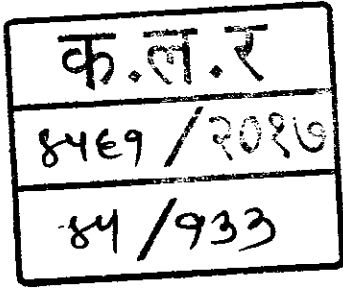 क.ल.र
४५६१ / २०१७
४५ / १३३